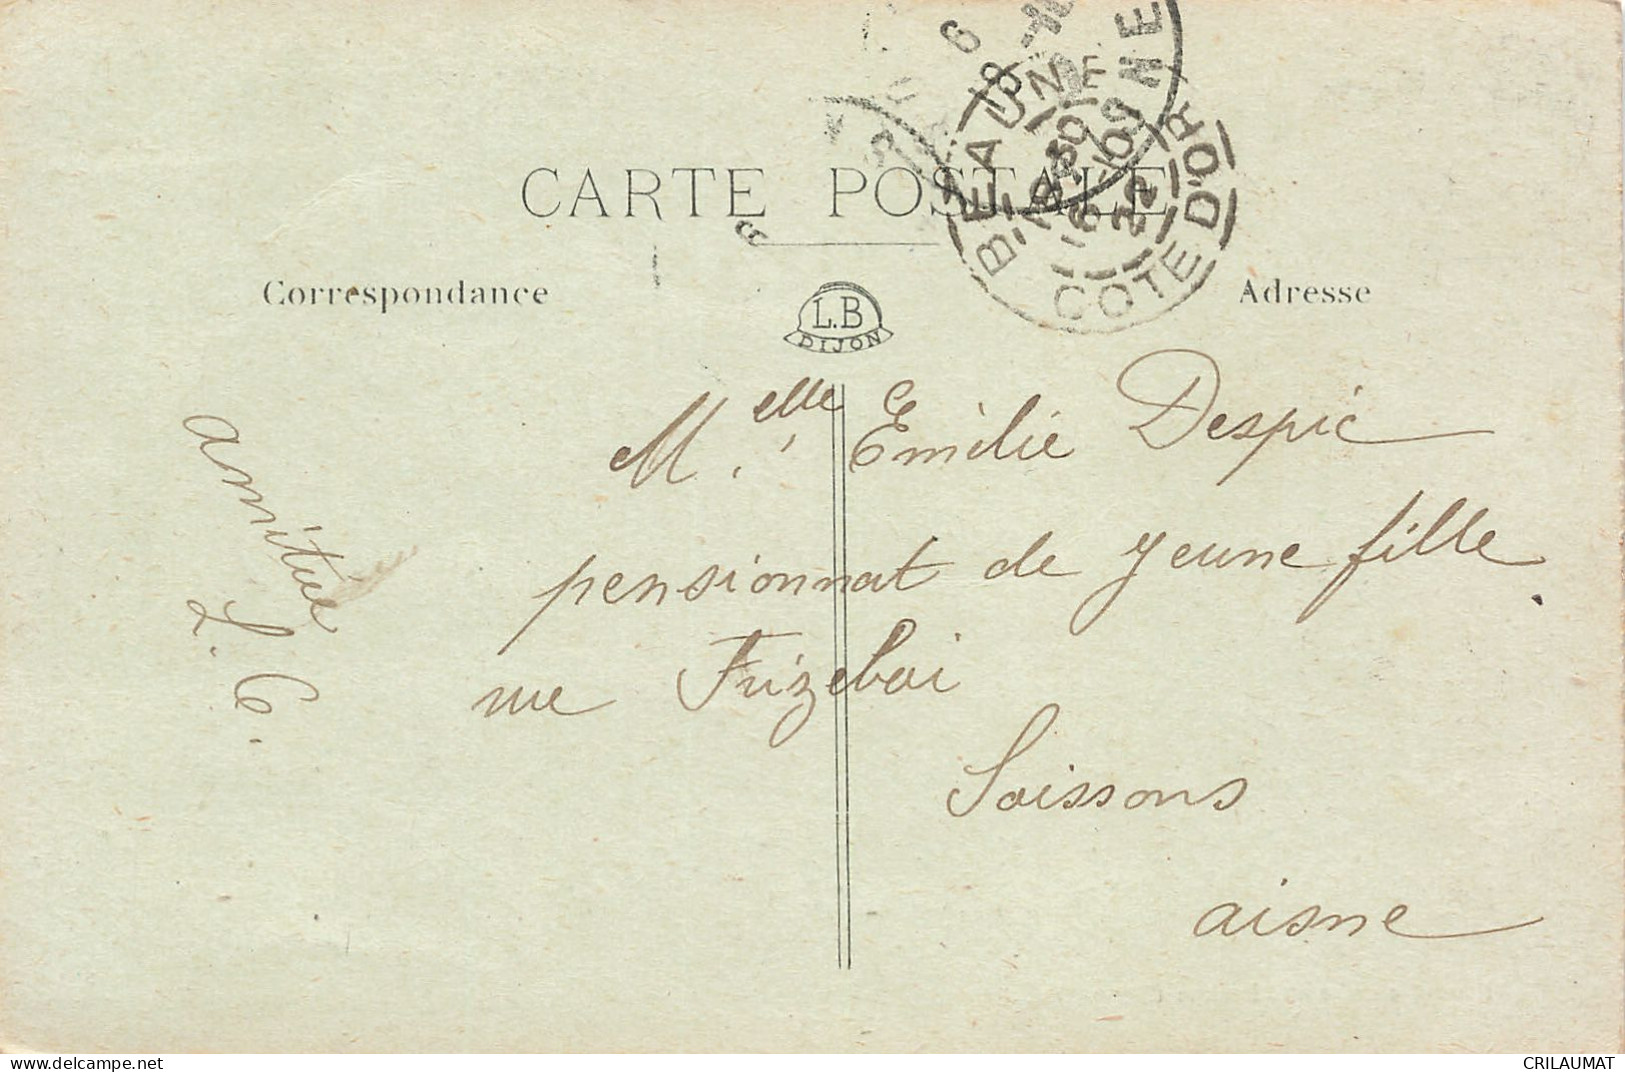 CARTE POSTALE
Correspondance
Adresse
L.B
DIJON
BEAUNE
COTE D'OR
Melle Emilie Despic
pensionnat de jeune fille
rue Frizeboi
Soissons
aisne
amitié
L. C.
www.delcampe.net
CRILAUMAT